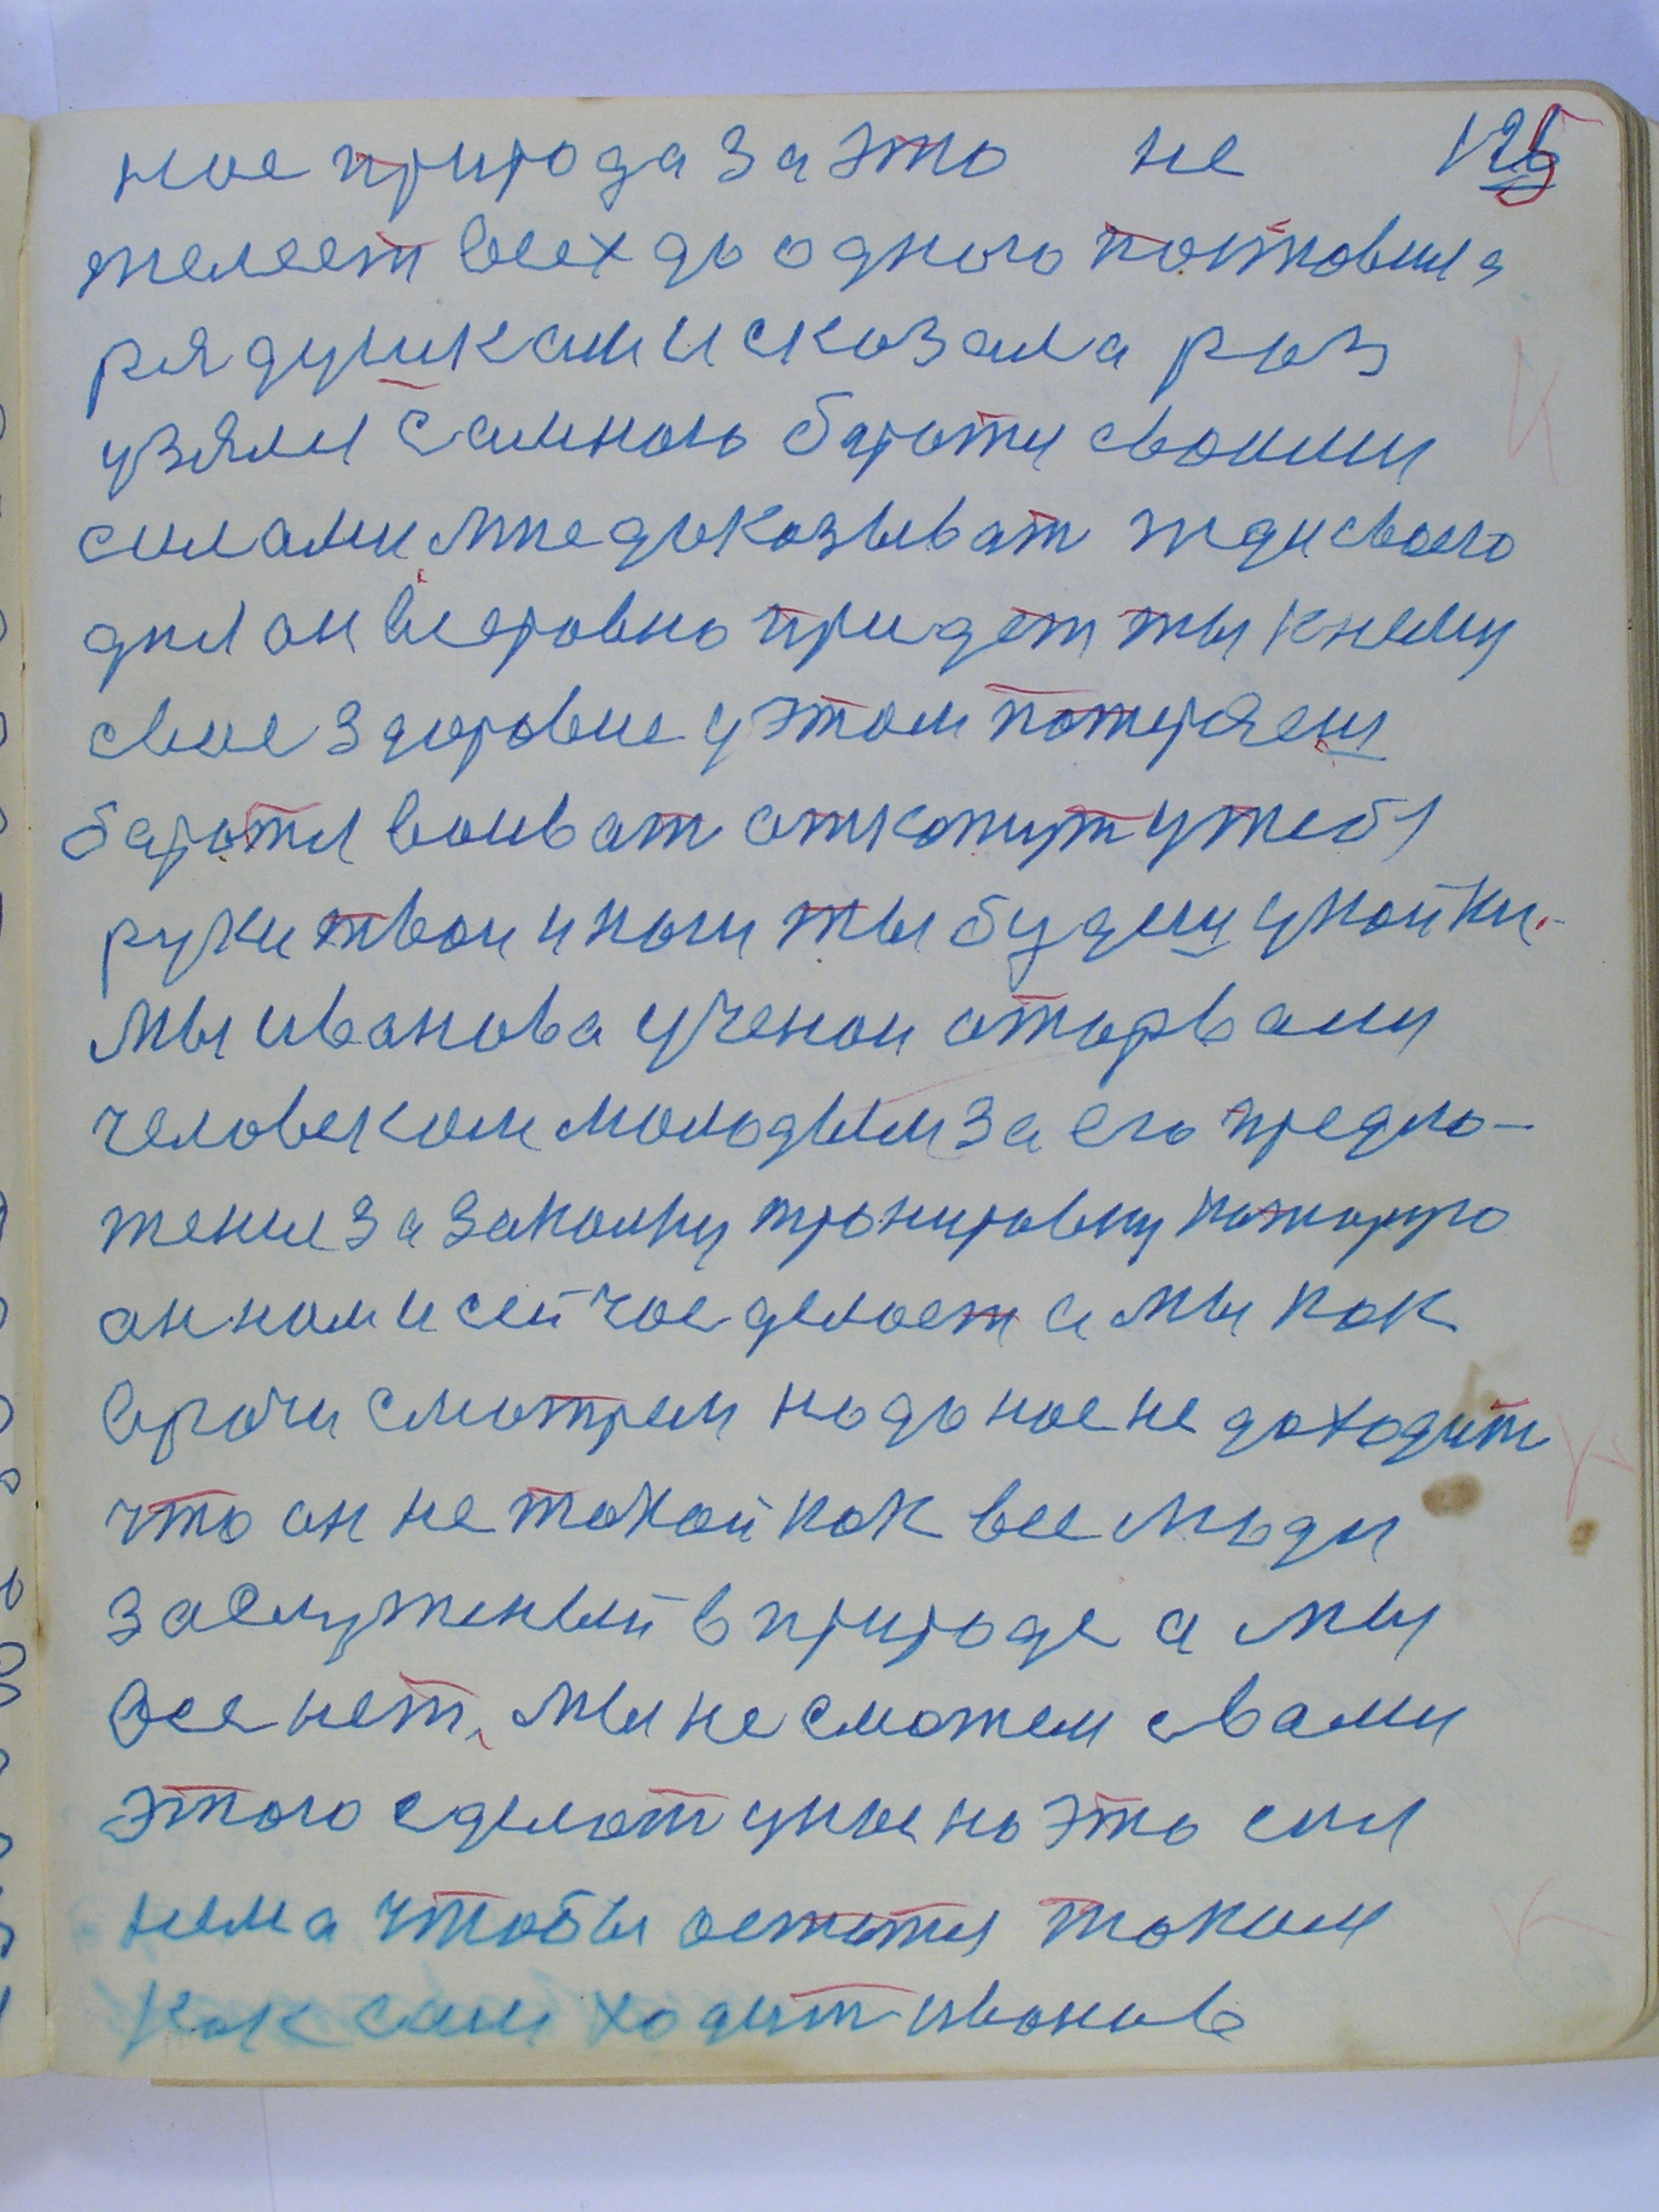 нас природа за это не 125
жалеет всех до одного поставила
рядушкам и сказала раз
узяли самною баротся своими
силами мне доказыват жди своего
дня он всеровно придет ты кнему
свое здоровие у этом потеряеш
баротся воиват откажут у тебя
руки твои и ноги ты будеш у койки.
Мы иванова ученои оторвали
человеком молодым за его предло-
жения за закалку тронировку которую
он нам и сейчас делает а мы как
врачи смотрем но до нас не доходит
что он не такой как все люди
заслуженый в природе а мы
все нет. Мы не сможем свами
этого сделат у нас на это сил
нема чтобы остатся таким
как сам ходит иванов